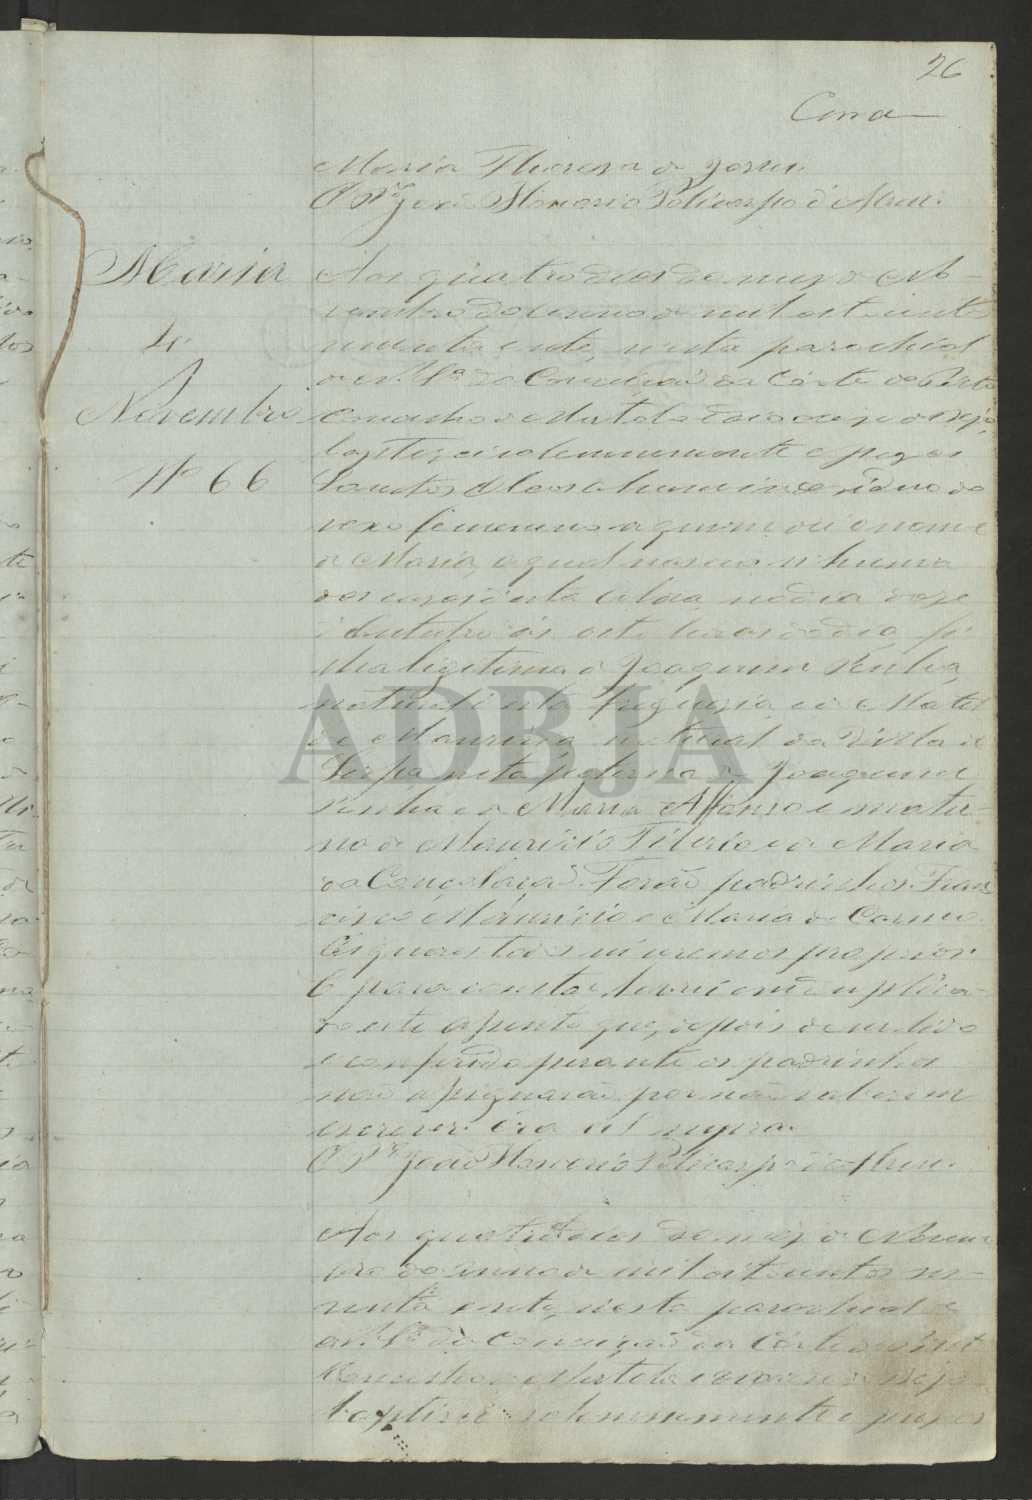 26
Maria Thereza de Jesus.
O P.e João Honorio Policarpo d'Abreu.
Maria
4
Novembro
Nº 66
Aos quatro dias do mez de No-
vembro do anno de mil oitocentos
noventa e sete, nesta parochial
de N. S.ra da Conceição da Côrte do Pinto
Concelho de Mertola e Diocese de Beja,
baptizei solemnemente e puz os
Santos Oleos a hum individuo do
sexo femenino a quem dei o nome
de Maria, a qual nasceu n'huma
aldea no dia doze
d'Outubro ás oito horas do dia, fi-
lha legitima de Joaquim Penha,
natural desta freguezia, e de Matil-
de Mauricia natural da Villa de
Serpa, neta paterna de Joaquim
Penha e de Maria Affonso e mater-
na de Mauricio e de Maria
da Conceição. Forão padrinhos Fran-
cisco Mauricio e Maria do Carmo
os quaes todos sei serem os proprios.
E para constar, lavrei em duplica-
do este assento que, depois de ser lido
e conferido perante os padrinhos
não assignarão por não saberem
escrever. Era ut supra.
O P.e João Honorio Policarpo d'Abreu.
Aos quatro dias do mez de Novem-
bro do anno de mil oitocentos no-
venta e sete, nesta parochial de
N. S.ra da Conceição da Côrte do Pinto
Concelho de Mertola e Diocese de Beja
baptizei solemnemente e puz os
ADBJA